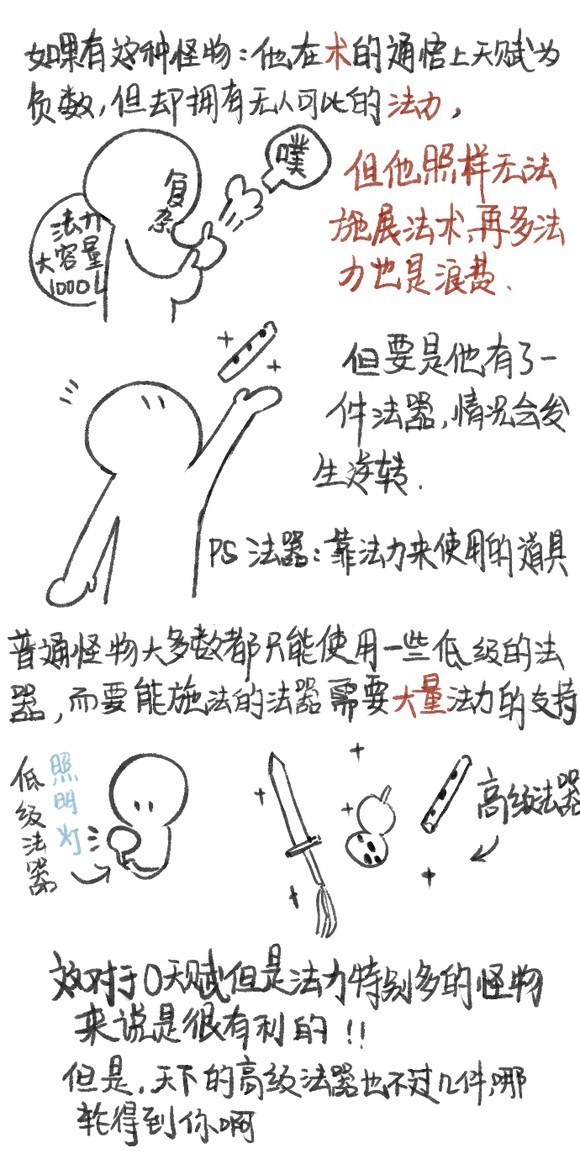 如果有这种怪物:他在术的通悟上天赋为
负数,但却拥有无人可比的法力,
噗
复杂
法力
大容量
1000L
但他照样无法
施展法术,再多法
力也是浪费.
但要是他有了一
件法器,情况会发
生逆转.
PS 法器:靠法力来使用的道具
普通怪物大多数都只能使用一些低级的法
器,而要能施法的法器需要大量法力的支持
照明灯
低级法器
高级法器
这对于0天赋但是法力特别多的怪物
来说是很有利的!!
但是,天下的高级法器也不过几件,哪
轮得到你啊